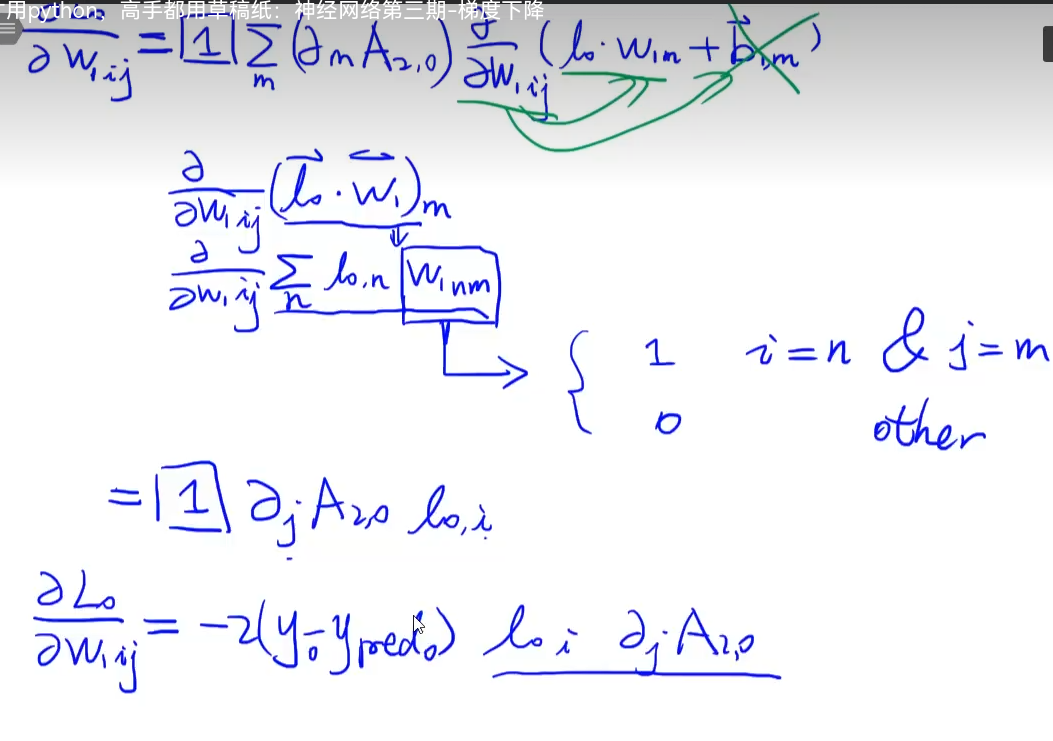 用python，高手都用草稿纸：神经网络第三期-梯度下降
∂W₁ᵢⱼ = [1] Σₘ (∂ₘA₂,₀) ∂/∂W₁ᵢⱼ (l₀·W₁ₘ + b⃗₁,ₘ)
∂/∂W₁ᵢⱼ (l⃗₀·W₁)ₘ
∂/∂W₁ᵢⱼ Σₙ l₀,ₙ W₁ₙₘ
1 i=n & j=m
0 other
= [1] ∂ⱼA₂,₀ l₀,ᵢ
∂L₀/∂W₁ᵢⱼ = -2(y₀-ypred₀) l₀ᵢ ∂ⱼA₂,₀